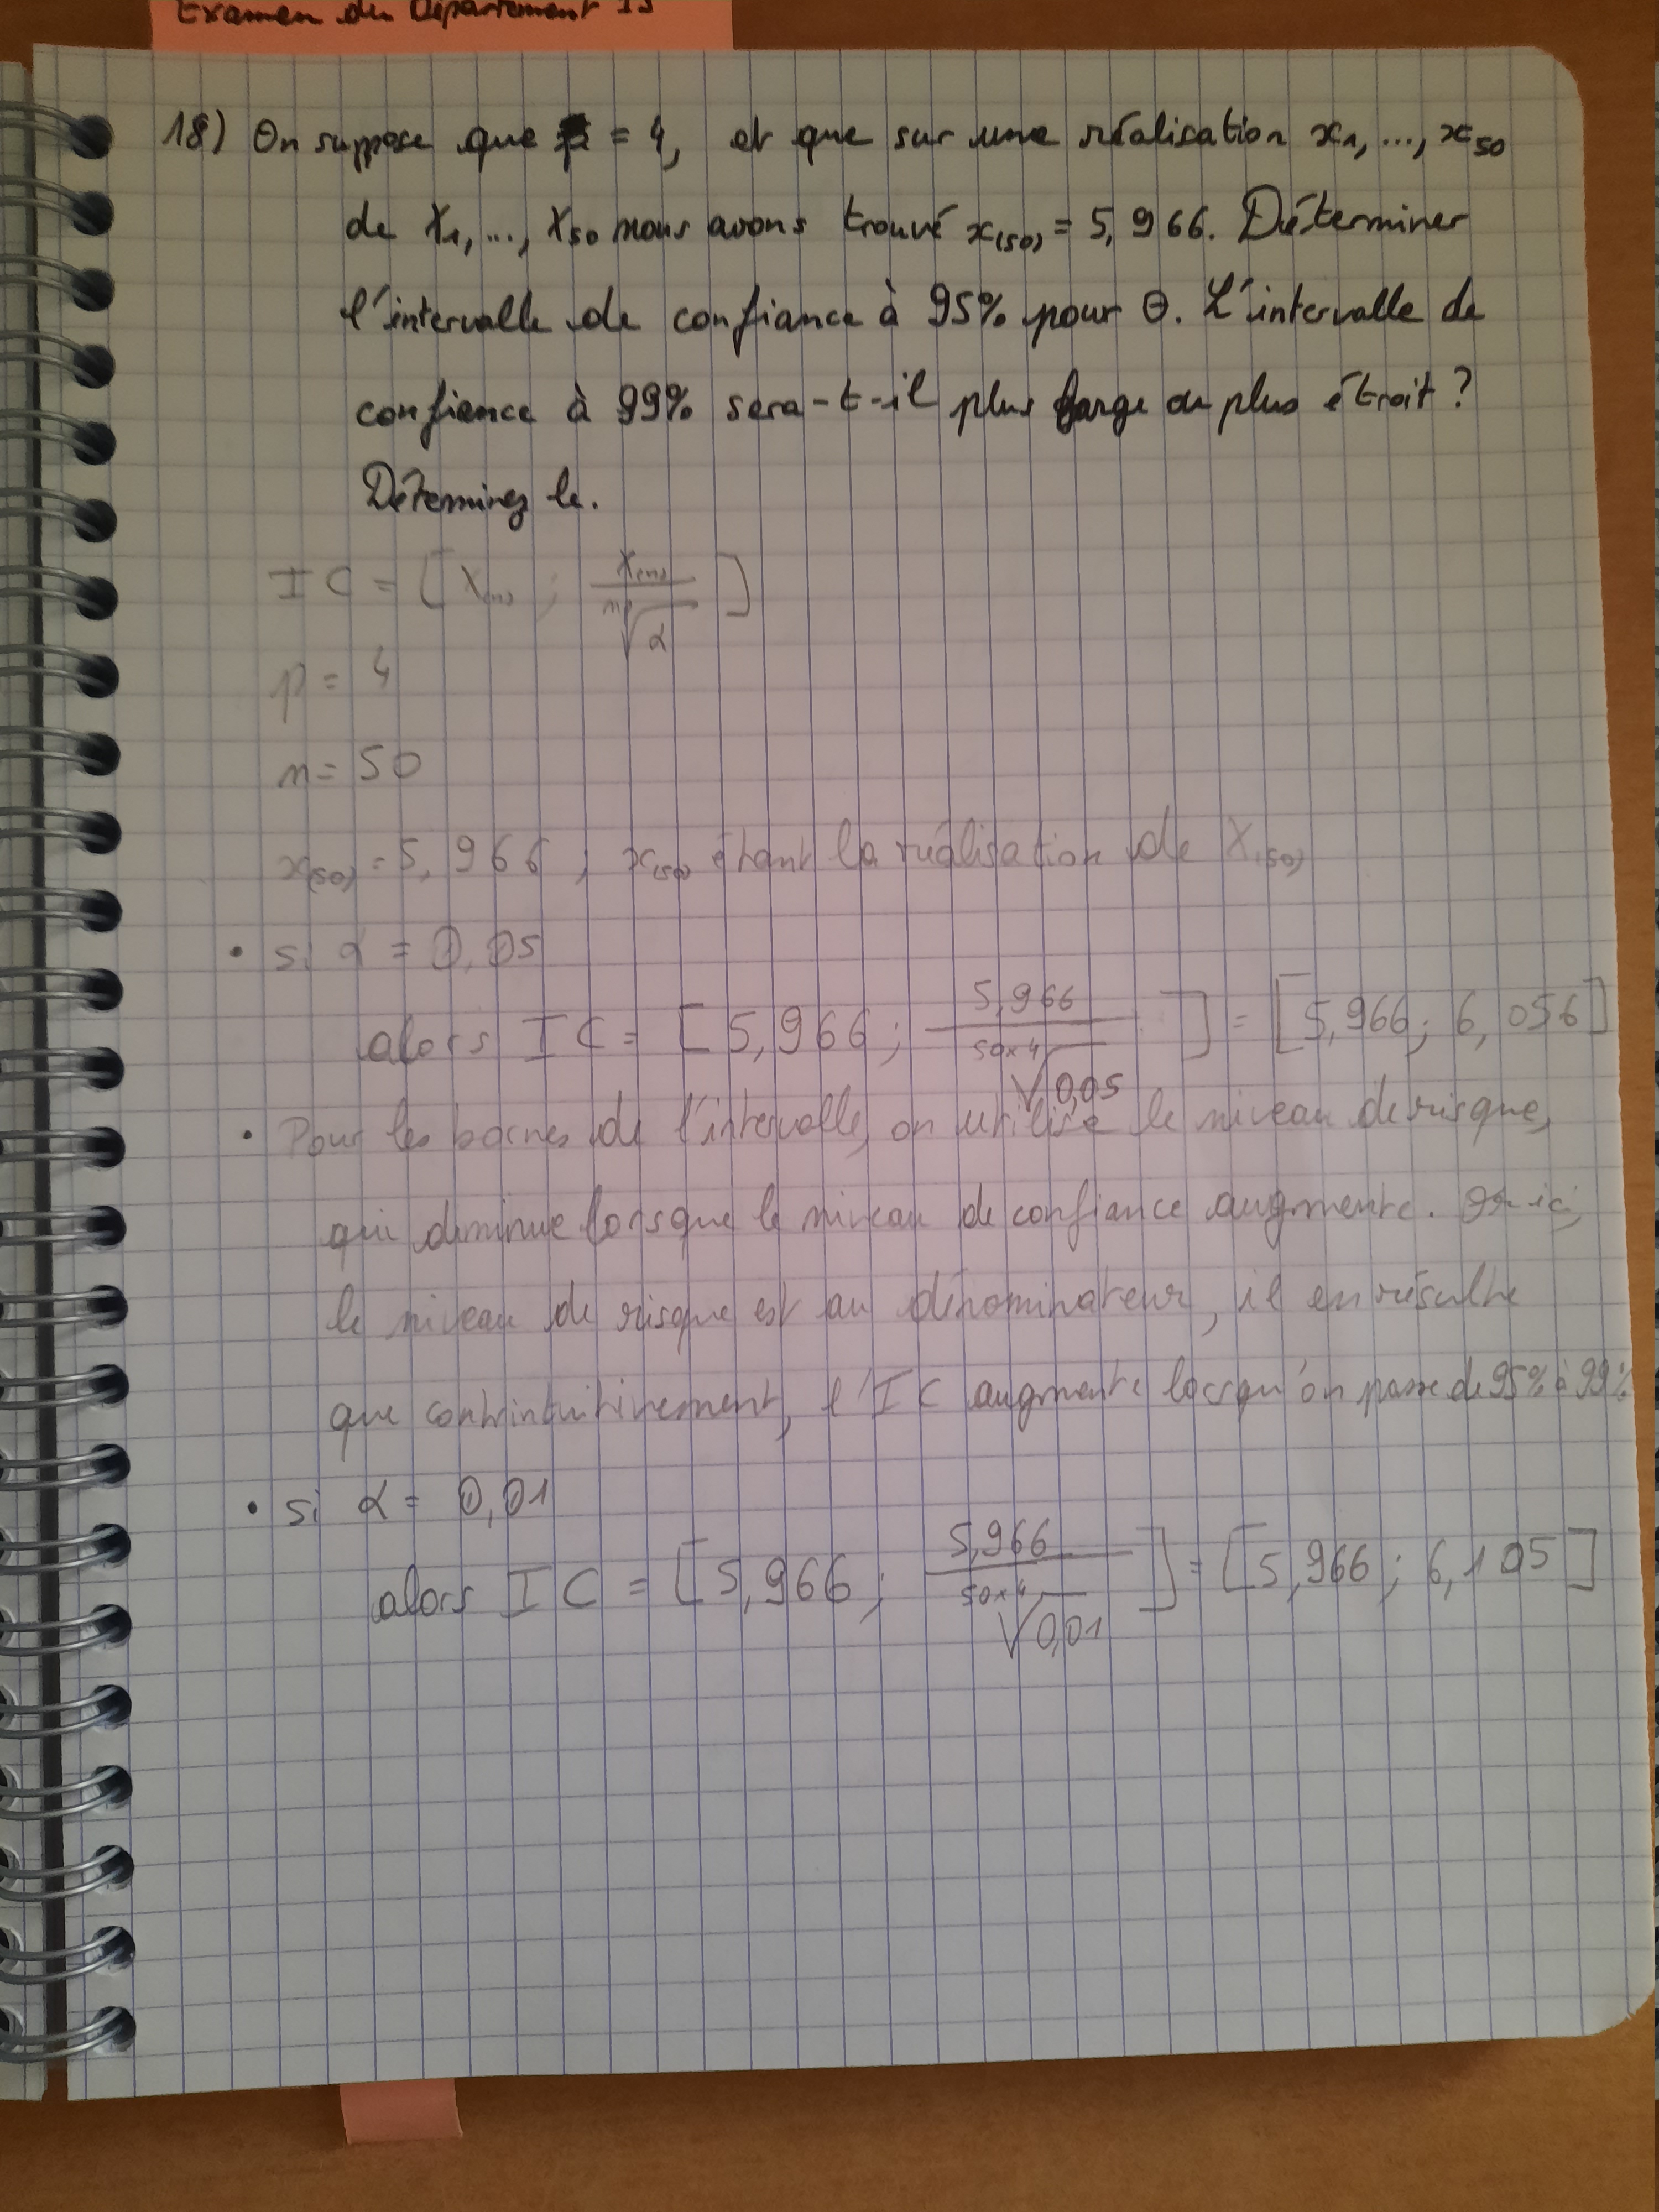 Examen du Département 13
18) On suppose que p = 4, et que sur une réalisation x₁, ..., x₅₀
de X₁, ..., X₅₀ nous avons trouvé x₍₅₀₎ = 5,966. Déterminer
l'intervalle de confiance à 95% pour θ. L'intervalle de
confience à 99% sera-t-il plus large ou plus étroit ?
Déterminez le.
IC = [X₍ₙ₎ ; X₍ₙ₎ / ⁿᵖ√α]
p = 4
n = 50
x₍₅₀₎ = 5,966 ; x₍₅₀₎ étant la réalisation de X₍₅₀₎
• si α = 0,05
alors IC = [5,966 ; 5,966 / ⁵⁰ˣ⁴√0,05] = [5,966 ; 6,056]
• Pour les bornes de l'intervalle, on utilise le niveau de risque,
qui diminue lorsque le niveau de confiance augmente. ici,
le niveau de risque est au dénominateur, il en résulte
que contrintuitivement, l'IC augmente lorsqu'on passe de 95% à 99%
• si α = 0,01
alors IC = [5,966 ; 5,966 / ⁵⁰ˣ⁴√0,01] = [5,966 ; 6,105]